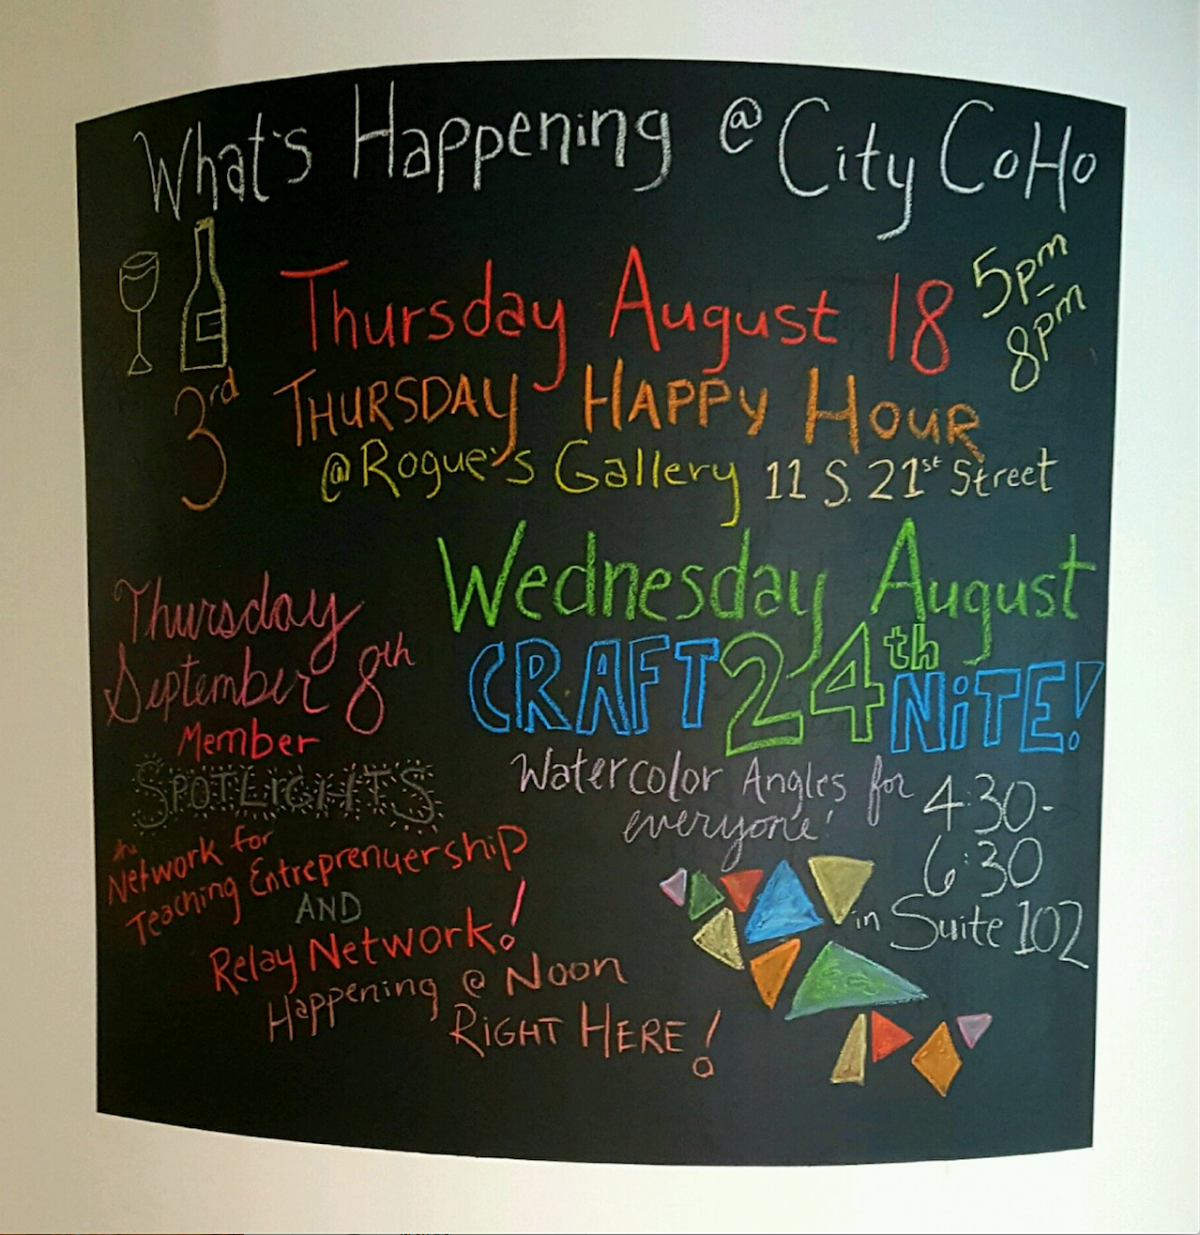 What's Happening @ City CoHo
Thursday August 18
5pm -
8pm
3rd THURSDAY HAPPY HOUR
@ Rogue's Gallery 11 S. 21st Street
Wednesday August
24th
CRAFT NiTE!
Watercolor Angles for
everyone!
4:30-
6:30
in Suite 102
Thursday
September 8th
Member
SPOTLIGHTS
the
Network for
Teaching Entreprenuership
AND
Relay Network!
Happening @ Noon
RIGHT HERE!